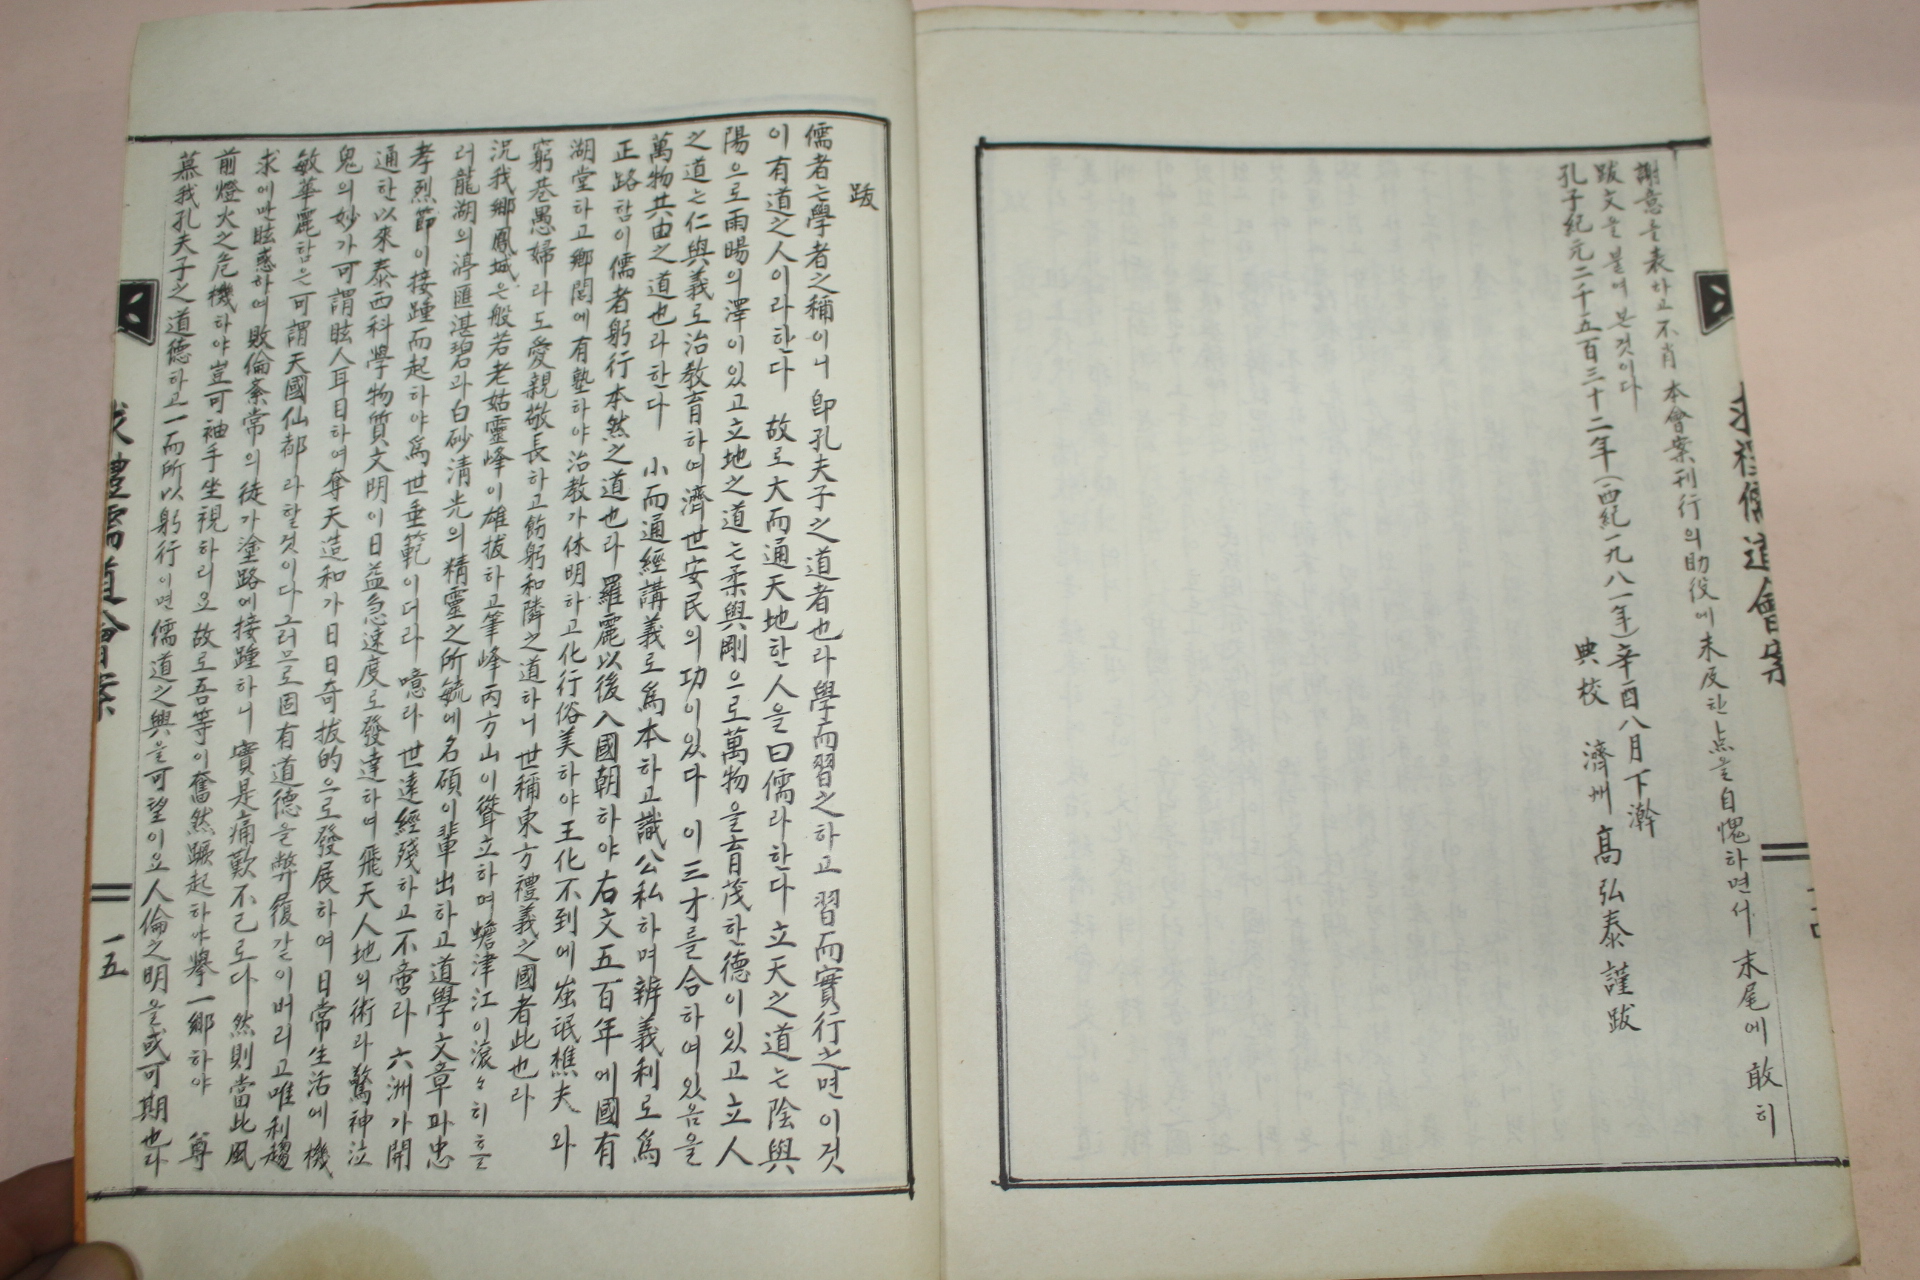 謝意을表하고不肖 本會案刊行의助役에未及한点을自愧하면서 末尾에 敢히
跋文을붙여본것이다
孔子紀元二千五百三十二年(西紀一九八一年)辛酉八月下澣
典校 濟州 高弘泰 謹跋
求禮儒道會案
跋
儒者는學者之稱이니 卽孔夫子之道者也라學而習之하고 習而實行之면이것
이有道之人이라한다 故로大而通天地한人을曰儒라한다 立天之道는陰與
陽으로雨暘의澤이있고立地之道는柔與剛으로萬物을育茂한德이있고立人
之道는仁與義로治教育하여濟世安民의功이있다 이三才를合하여있음을
萬物共由之道也라한다 小而通經講義로爲本하고識公私하며辨義利로爲
正路함이儒者躬行本然之道也라 羅麗以後入國朝하야右文五百年에國有
湖堂하고鄉閭에有塾하야治教가休明하고化行俗美하야王化不到에蚩氓樵夫와
窮巷愚婦라도愛親敬長하고飭躬和隣之道하니世稱東方禮義之國者此也라
況我鄉鳳城은般若老姑靈峰이雄拔하고筆峰丙方山이聳立하며蟾津江이滾々히흘
러龍湖의渟匯湛碧과白砂淸光의精靈之所毓에名碩이輩出하고道學文章과忠
孝烈節이接踵而起하야爲世垂範이더라 噫라 世遠經殘하고不啻라 六洲가開
通한以來泰西科學物質文明이日益急速度로發達하여飛天人地의術라驚神泣
鬼의妙가可謂眩人耳目하여奪天造和가日日奇拔的으로發展하여日常生活에機
敏華麗함은可謂天國仙都라할것이다그러므로固有道德을弊履갈이버리고唯利趨
求에만眩惑하여敗倫紊常의徒가塗路에接踵하니 實是痛歎不已로다 然則當此風
前燈火之危機하야豈可袖手坐視하리오故로吾等이奮然蹶起하야擧一鄉하야 尊
慕我孔夫子之道德하고一而所以躬行이면儒道之興을可望이요人倫之明을或可期也라
求禮儒道會案
一五